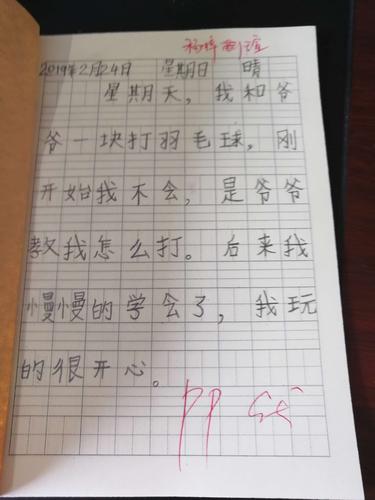 2019年2月24日 星期日 晴
星期天，我和爷
爷一块打羽毛球，刚
开始我不会，是爷爷
教我怎么打。后来我
慢慢的学会了，我玩
的很开心。